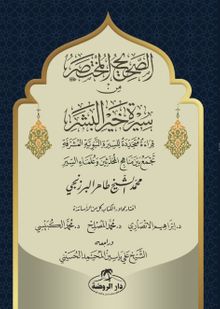 الصحيح المختصر
من
سيرة خير البشر
قراءة متجددة للسيرة النبوية المشرفة
تجمع بين مناهج المحدثين وعلماء السير
محمد الشيخ طاهر البرزنجي
د. إبراهيم الأنصاري د. محمد المصلح د. محمد الكبيسي
وراجعه
دار الروضة